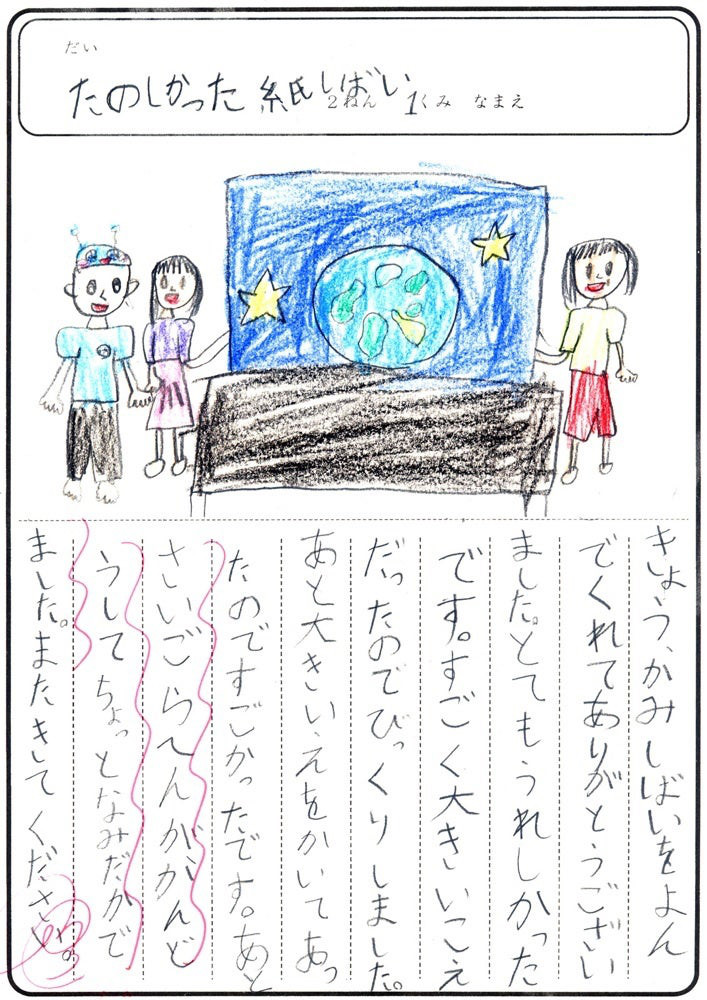 だい
たのしかった紙しばい
2ねん 1くみ なまえ
きょう、かみしばいをよん
でくれてありがとうござい
ました。とてもうれしかった
です。すごく大きいこえ
だったのでびっくりしました。
あと大きいいえをかいてあっ
たのですごかったです。あと
さいごらへんがかんど
うしてちょっとなみだがで
ました。またきてください。